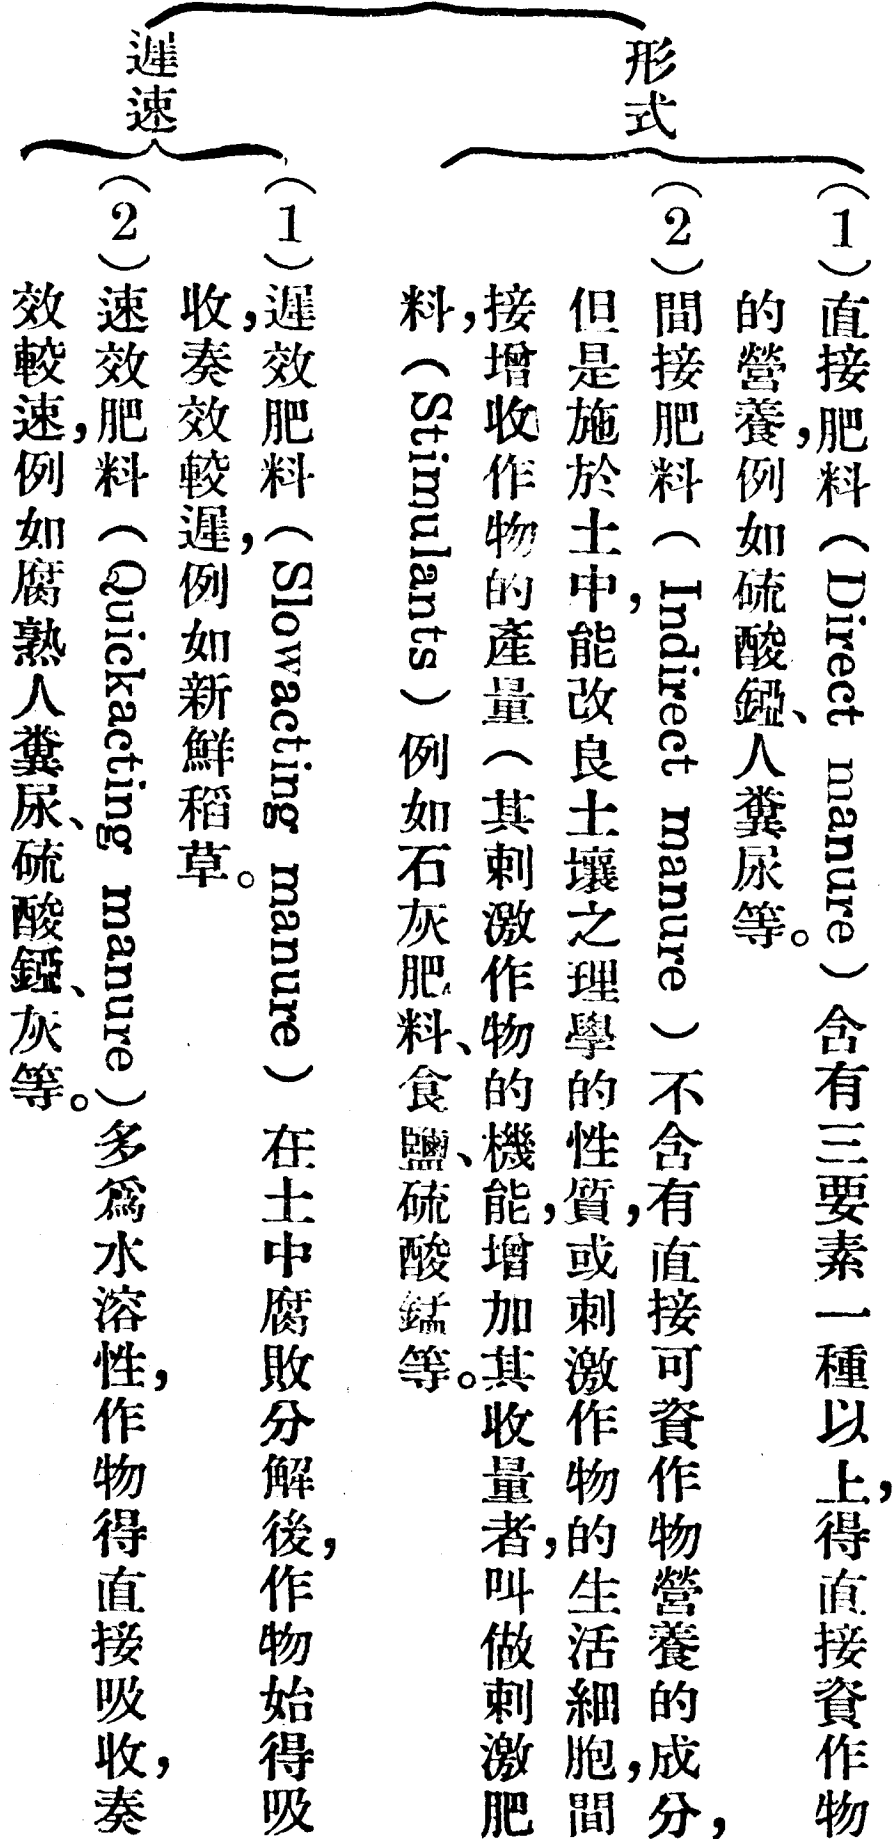 形式
（1）直接肥料（Direct manure）含有三要素一種以上，得直接資作物
的營養，例如硫酸錏、人糞尿等。
（2）間接肥料（Indirect manure）不含有直接可資作物營養的成分，
但是施於土中，能改良土壤之理學的性質，或刺激作物的生活細胞，間
接增收作物的產量（其刺激作物的機能，增加其收量者，叫做刺激肥
料，（Stimulants）例如石灰肥料、食鹽、硫酸錳等。
遲速
（1）遲效肥料（Slowacting manure）在土中腐敗分解後，作物始得吸
收，奏效較遲，例如新鮮稻草。
（2）速效肥料（Quickacting manure）多爲水溶性，作物得直接吸收，奏
效較速，例如腐熟人糞尿、硫酸錏、灰等。